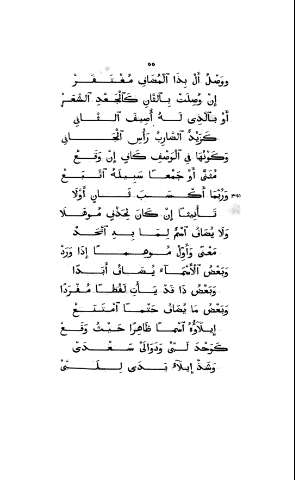 ٥٥
وَوَصْلُ أَلْ بِذَا ٱلْمُضَافِ مُغْتَفَرْ
إِنْ وُصِلَتْ بِٱلثَّانِ كَٱلْجَعْدِ ٱلشَّعَرْ
أَوْ بِٱلَّذِى لَهُ أُضِيفَ ٱلثَّانِى
كَزَيْدٌ ٱلضَّارِبُ رَأْسِ ٱلْجَانِى
وَكَوْنُهَا فِى ٱلْوَصْفِ كَافٍ إِنْ وَقَعْ
مُثَنًّى أَوْ جَمْعًا سَبِيلَهُ ٱتَّبَعْ
وَرُبَّمَا أَكْسَبَ ثَانٍ أَوَّلَا
تَأْنِيثًا إِنْ كَانَ لِحَذْفٍ مُوهَلَا
وَلَا يُضَافُ ٱسْمٌ لِمَا بِهِ ٱتَّحَدْ
مَعْنًى وَأَوِّلْ مُوهِمًا إِذَا وَرَدْ
وَبَعْضُ ٱلْأَسْمَآءِ يُضَافُ أَبَدَا
وَبَعْضُ ذَا قَدْ يَأْتِ لَفْظًا مُفْرَدَا
وَبَعْضُ مَا يُضَافُ حَتْمًا ٱمْتَنَعْ
إِيلَاؤُهُ ٱسْمًا ظَاهِرًا حَيْثُ وَقَعْ
كَوَحْدَ لَبَّىْ وَدَوَالَىْ سَعْدَىْ
وَشَذَّ إِيلَآءُ يَدَىْ لِلَبَّىْ